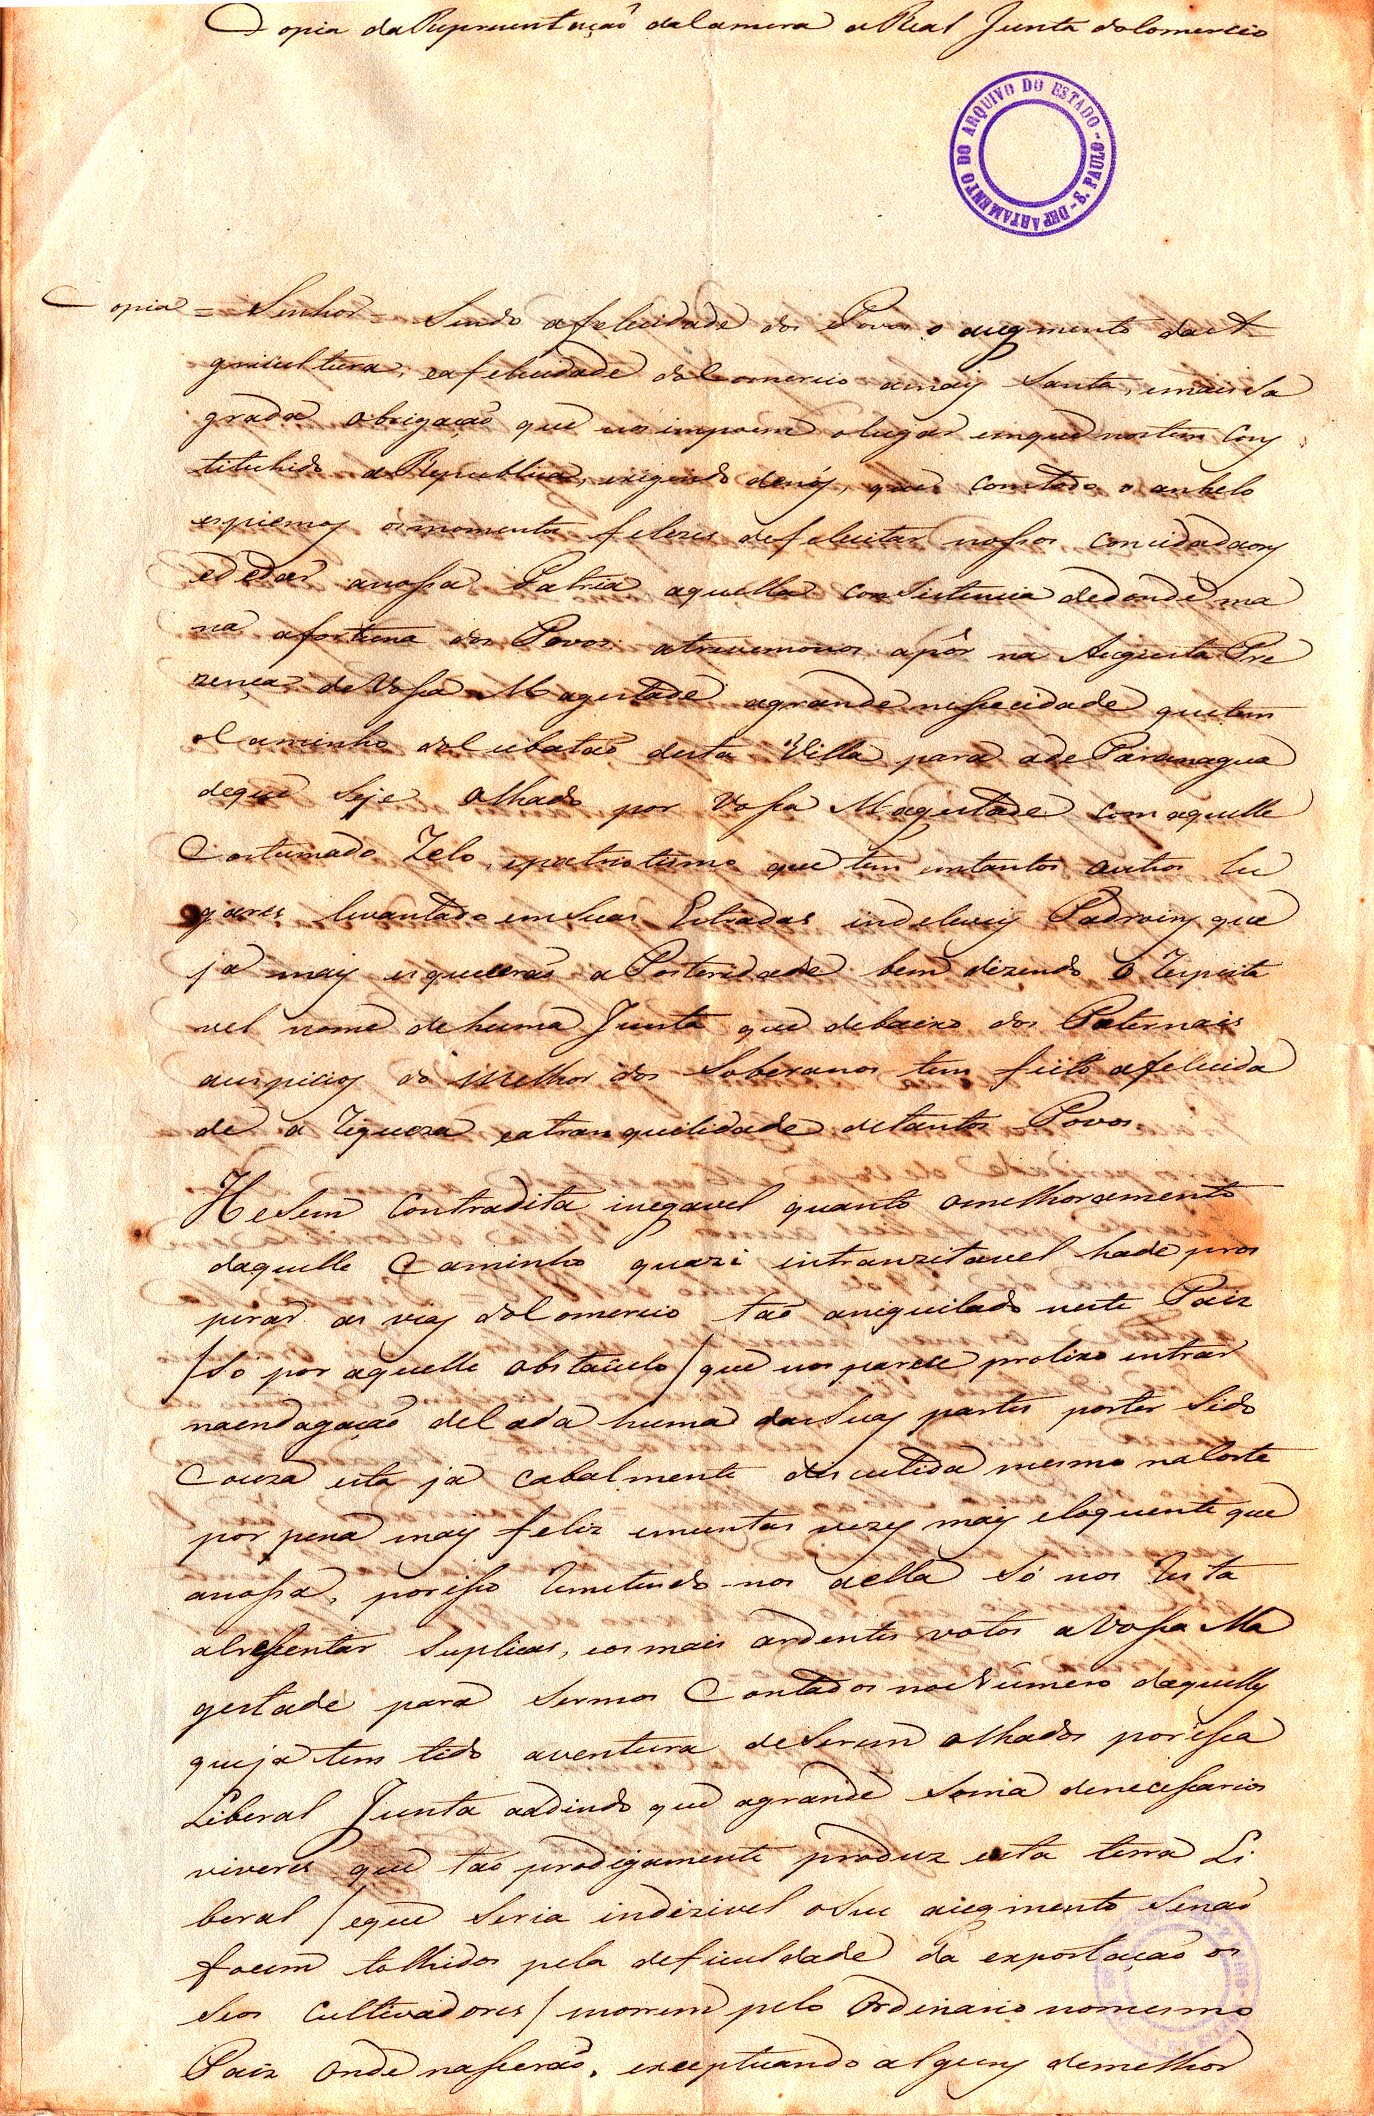 Copia da Reprezentação da Camera a Real Junta do Comercio
DEPARTAMENTO DO ARQUIVO DO ESTADO - S. PAULO -
Copia = Senhor = Sendo a felecidade dos Povos o augmento da A
gricultura, ea felicidade do Comercio a maiz Santa, emais Sa
grada obrigação que nos impoem o lugar emque nos tem Conz
tituhido a Republica, exigindo denós, que comtodo o anhelo
espiemoz os momentos felizes defelicitar nossos concidadaonz
ededar anossa Patria aquella consistencia dedonde ma
na afortuna dos Povos: atrevemonos apôr na Augusta Pre
zença de Vossa Magestade agrande nessecidade quetem
oCaminho doCubatão desta Villa para ade Paranagua
deque Seje olhado por Vossa Magestade com aquelle
Costumado Zelo, epatriotismo que tem emtantos outros lu
gares levantado emsuas Estradas indeleveiz Padroinz que
ja maiz esquecerão a Posteridade bem dizendo o Respeita
vel nome dehuma Junta que debaixo dos Paternais
auspicioz do Melhor dos Soberanos tem feito afelicida
de a riqueza eatranquilidade detantos Povos.
Hesem Contradita inegavel quanto omelhoramento
daquelle Caminho quazi intranzitavel hade pros
perar as viaz doComercio tão aniquilado neste Paiz
/Só por aquelle obstaculo/ que nos parece prolixo entrar
naendagação deCada huma dasSuaz partes porter Sido
Couza esta ja cabalmente descutida mesmo naCorte
por pena maiz feliz emuntas vezez maiz eloquente que
anossa, porisso remetendo-nos aella Só nos resta
acressentar Suplicas, eos mais ardentes votos aVossa Ma
gestade para sermos Contados no Número daquellez
queja tem tido aventura deSerem olhados poressa
Liberal Junta aadindo que agrande Soma denecessarios
viveres que tão prodigamente produz esta terra Li
beral /eque Seria indizivel oSeu augmento Senão
focem tolhidos pela deficuldade da exportação os
Seos Cultivadores/ morrem pelo Ordinario nomesmo
Paiz Onde nasserão, exceptuando alguns demelhor